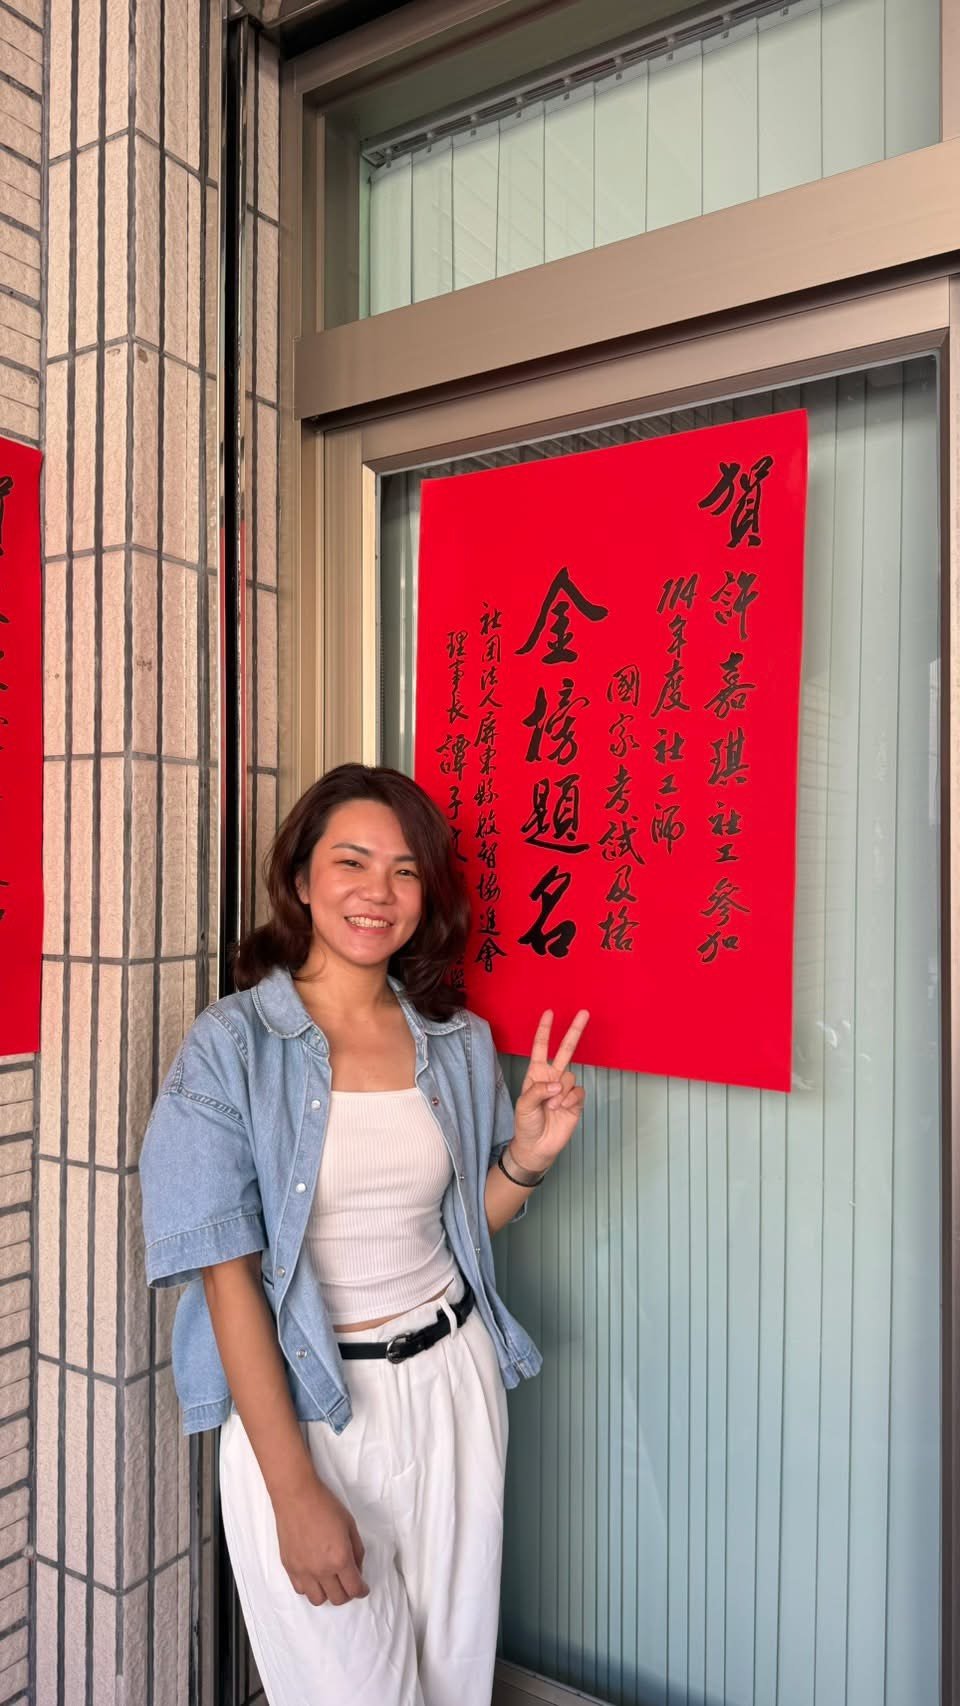 賀許嘉琪社工參加
114年度社工師
國家考試及格
金榜題名
社團法人屏東縣啟智協進會
理事長譚子文